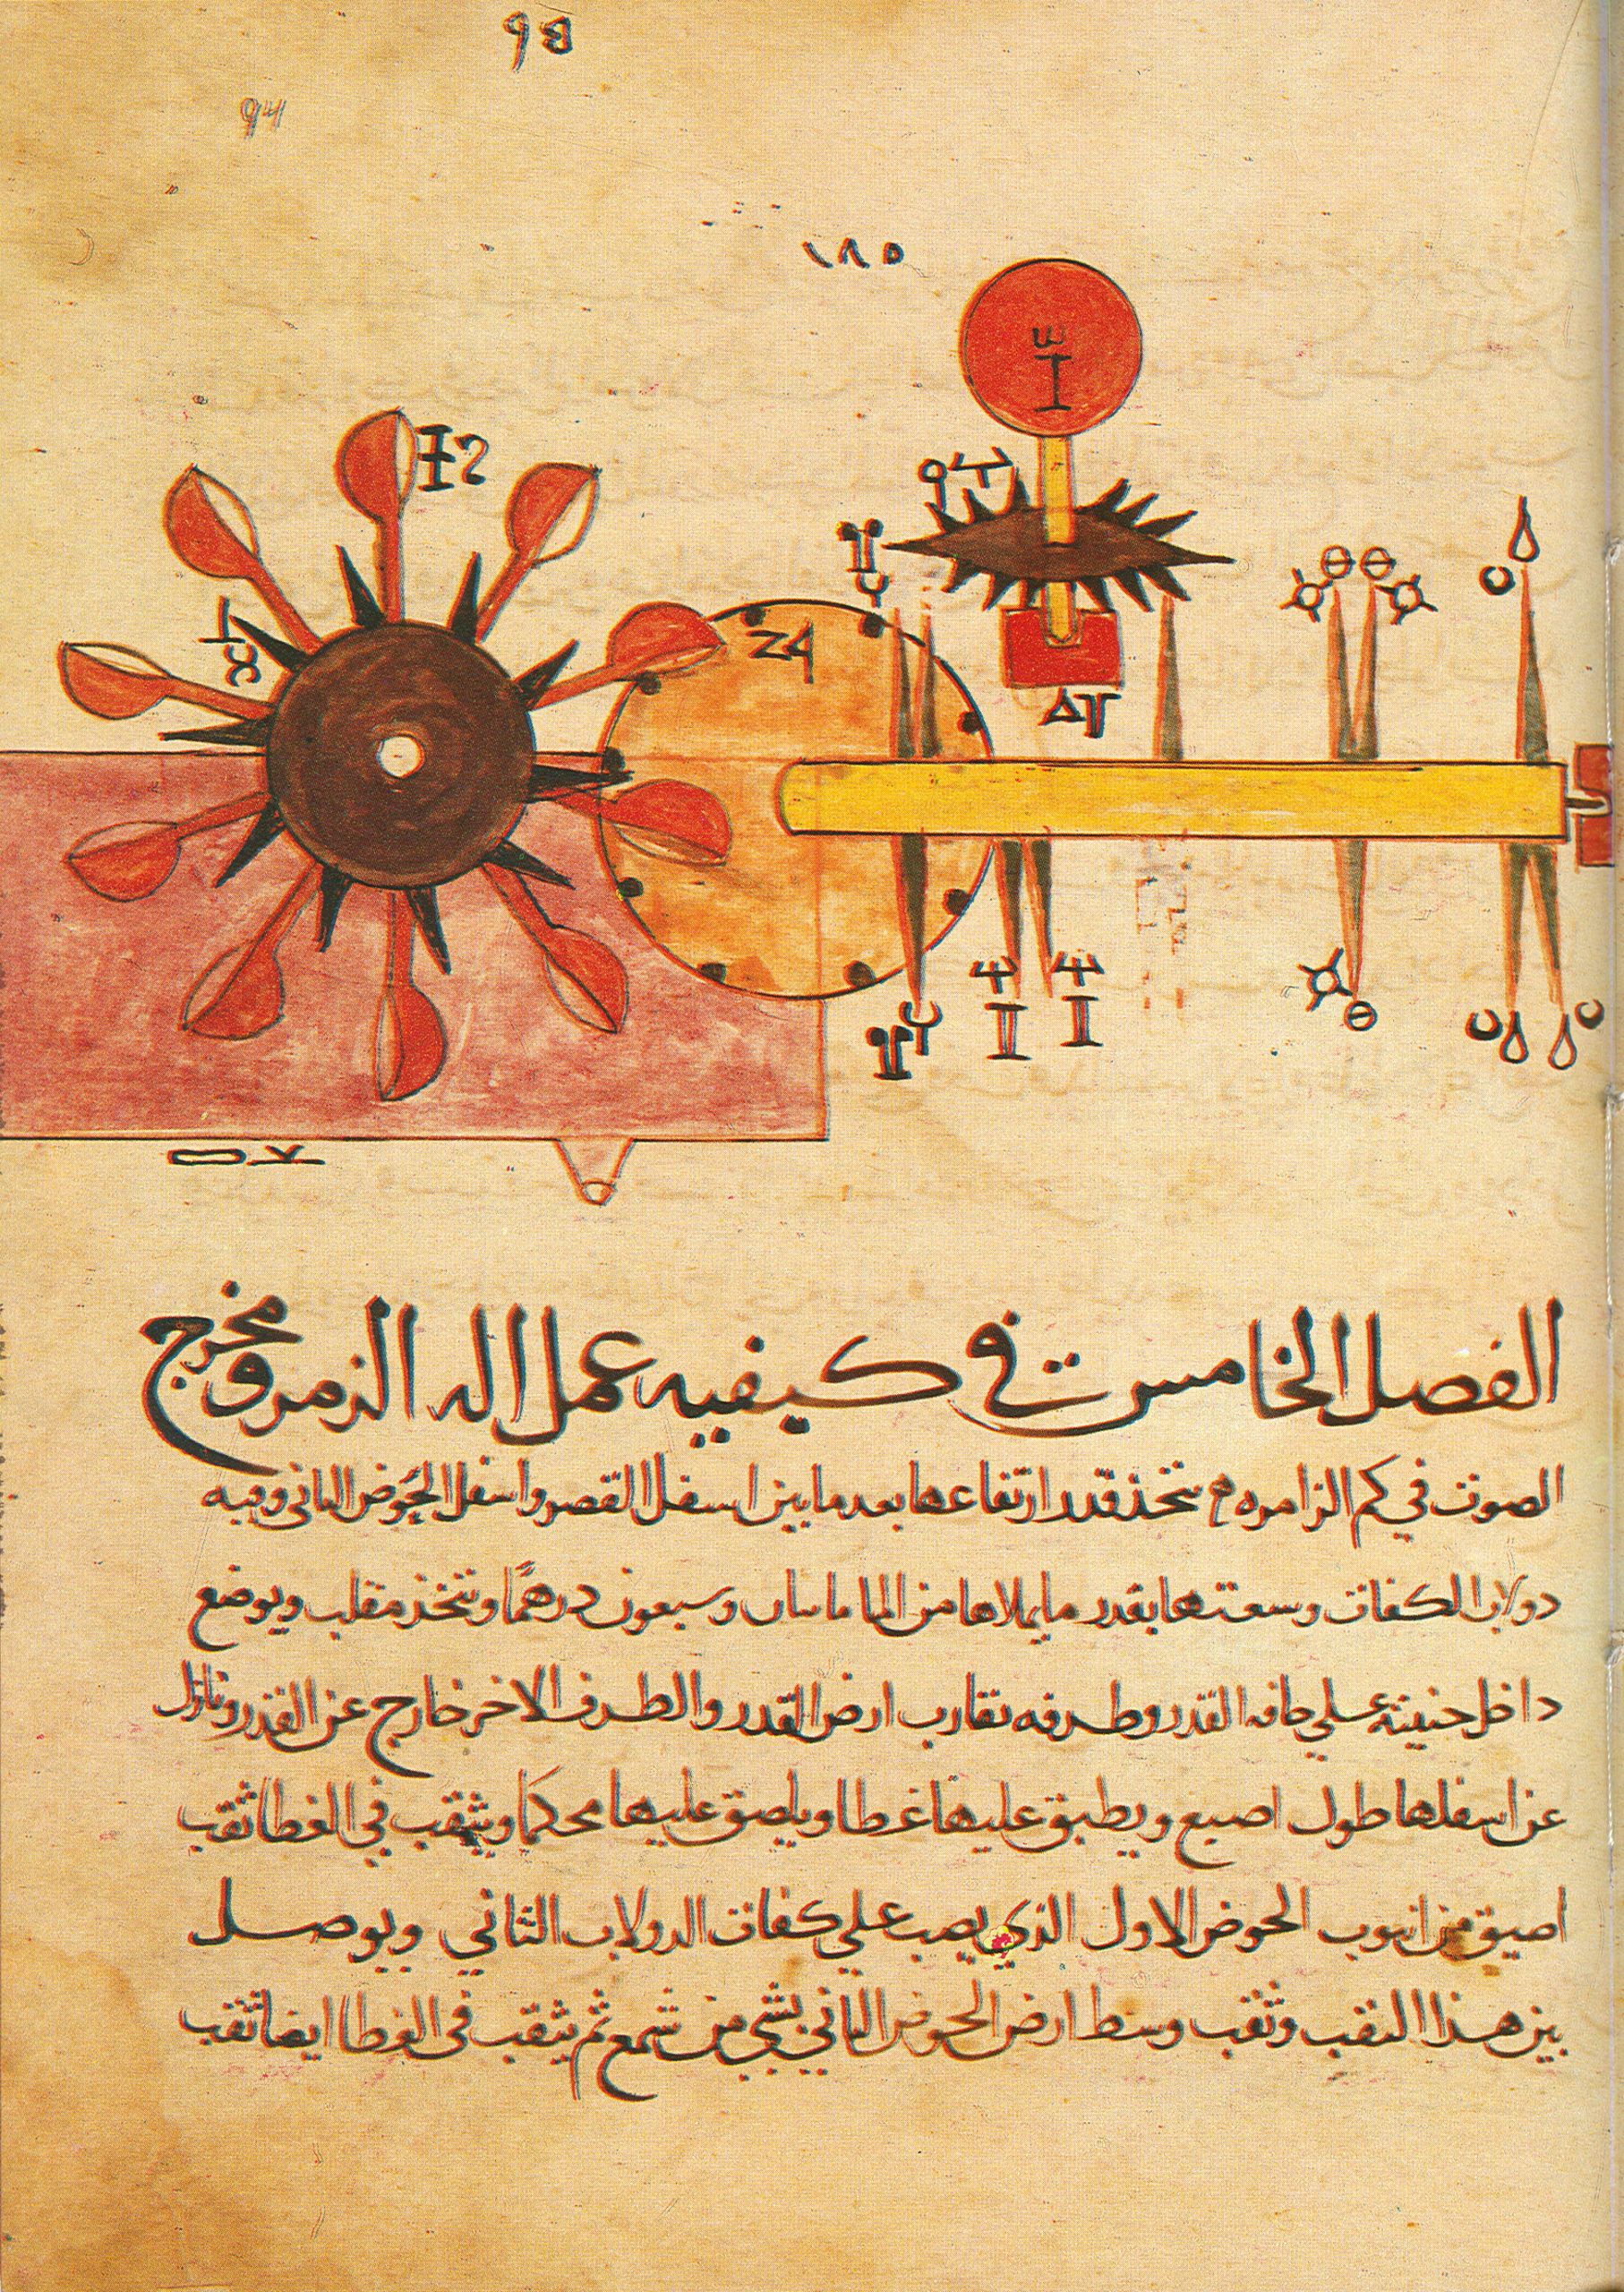 ١٨٥
الفصل الخامس في كيفيه عمل اله الزمر ومخرج
الصوت في كم الزامره يتخذ قدر ارتفاعها بعد ما بين اسفل القصر واسفل الحوض الثاني وفيه
دولاب الكفات وسعتها بقدر ما يملاها من الما مايتان وسبعون درهمًا ويتخذ مقلب ويوضع
داخل حنيته علي حافه القدر وطرفه تقارب ارض القدر والطرف الاخر خارج عن القدر ونازل
عن اسفلها طول اصبع ويطبق عليها غطا ويلصق عليها محكمًا ويثقب في الغطا ثقب
اضيق من انبوب الحوض الاول الذي يصب علي كفات الدولاب الثاني ويوصل
بين هذا الثقب وثقب وسط ارض الحوض الثاني بشي من شمع ثم يثقب في الغطا ايضا ثقب